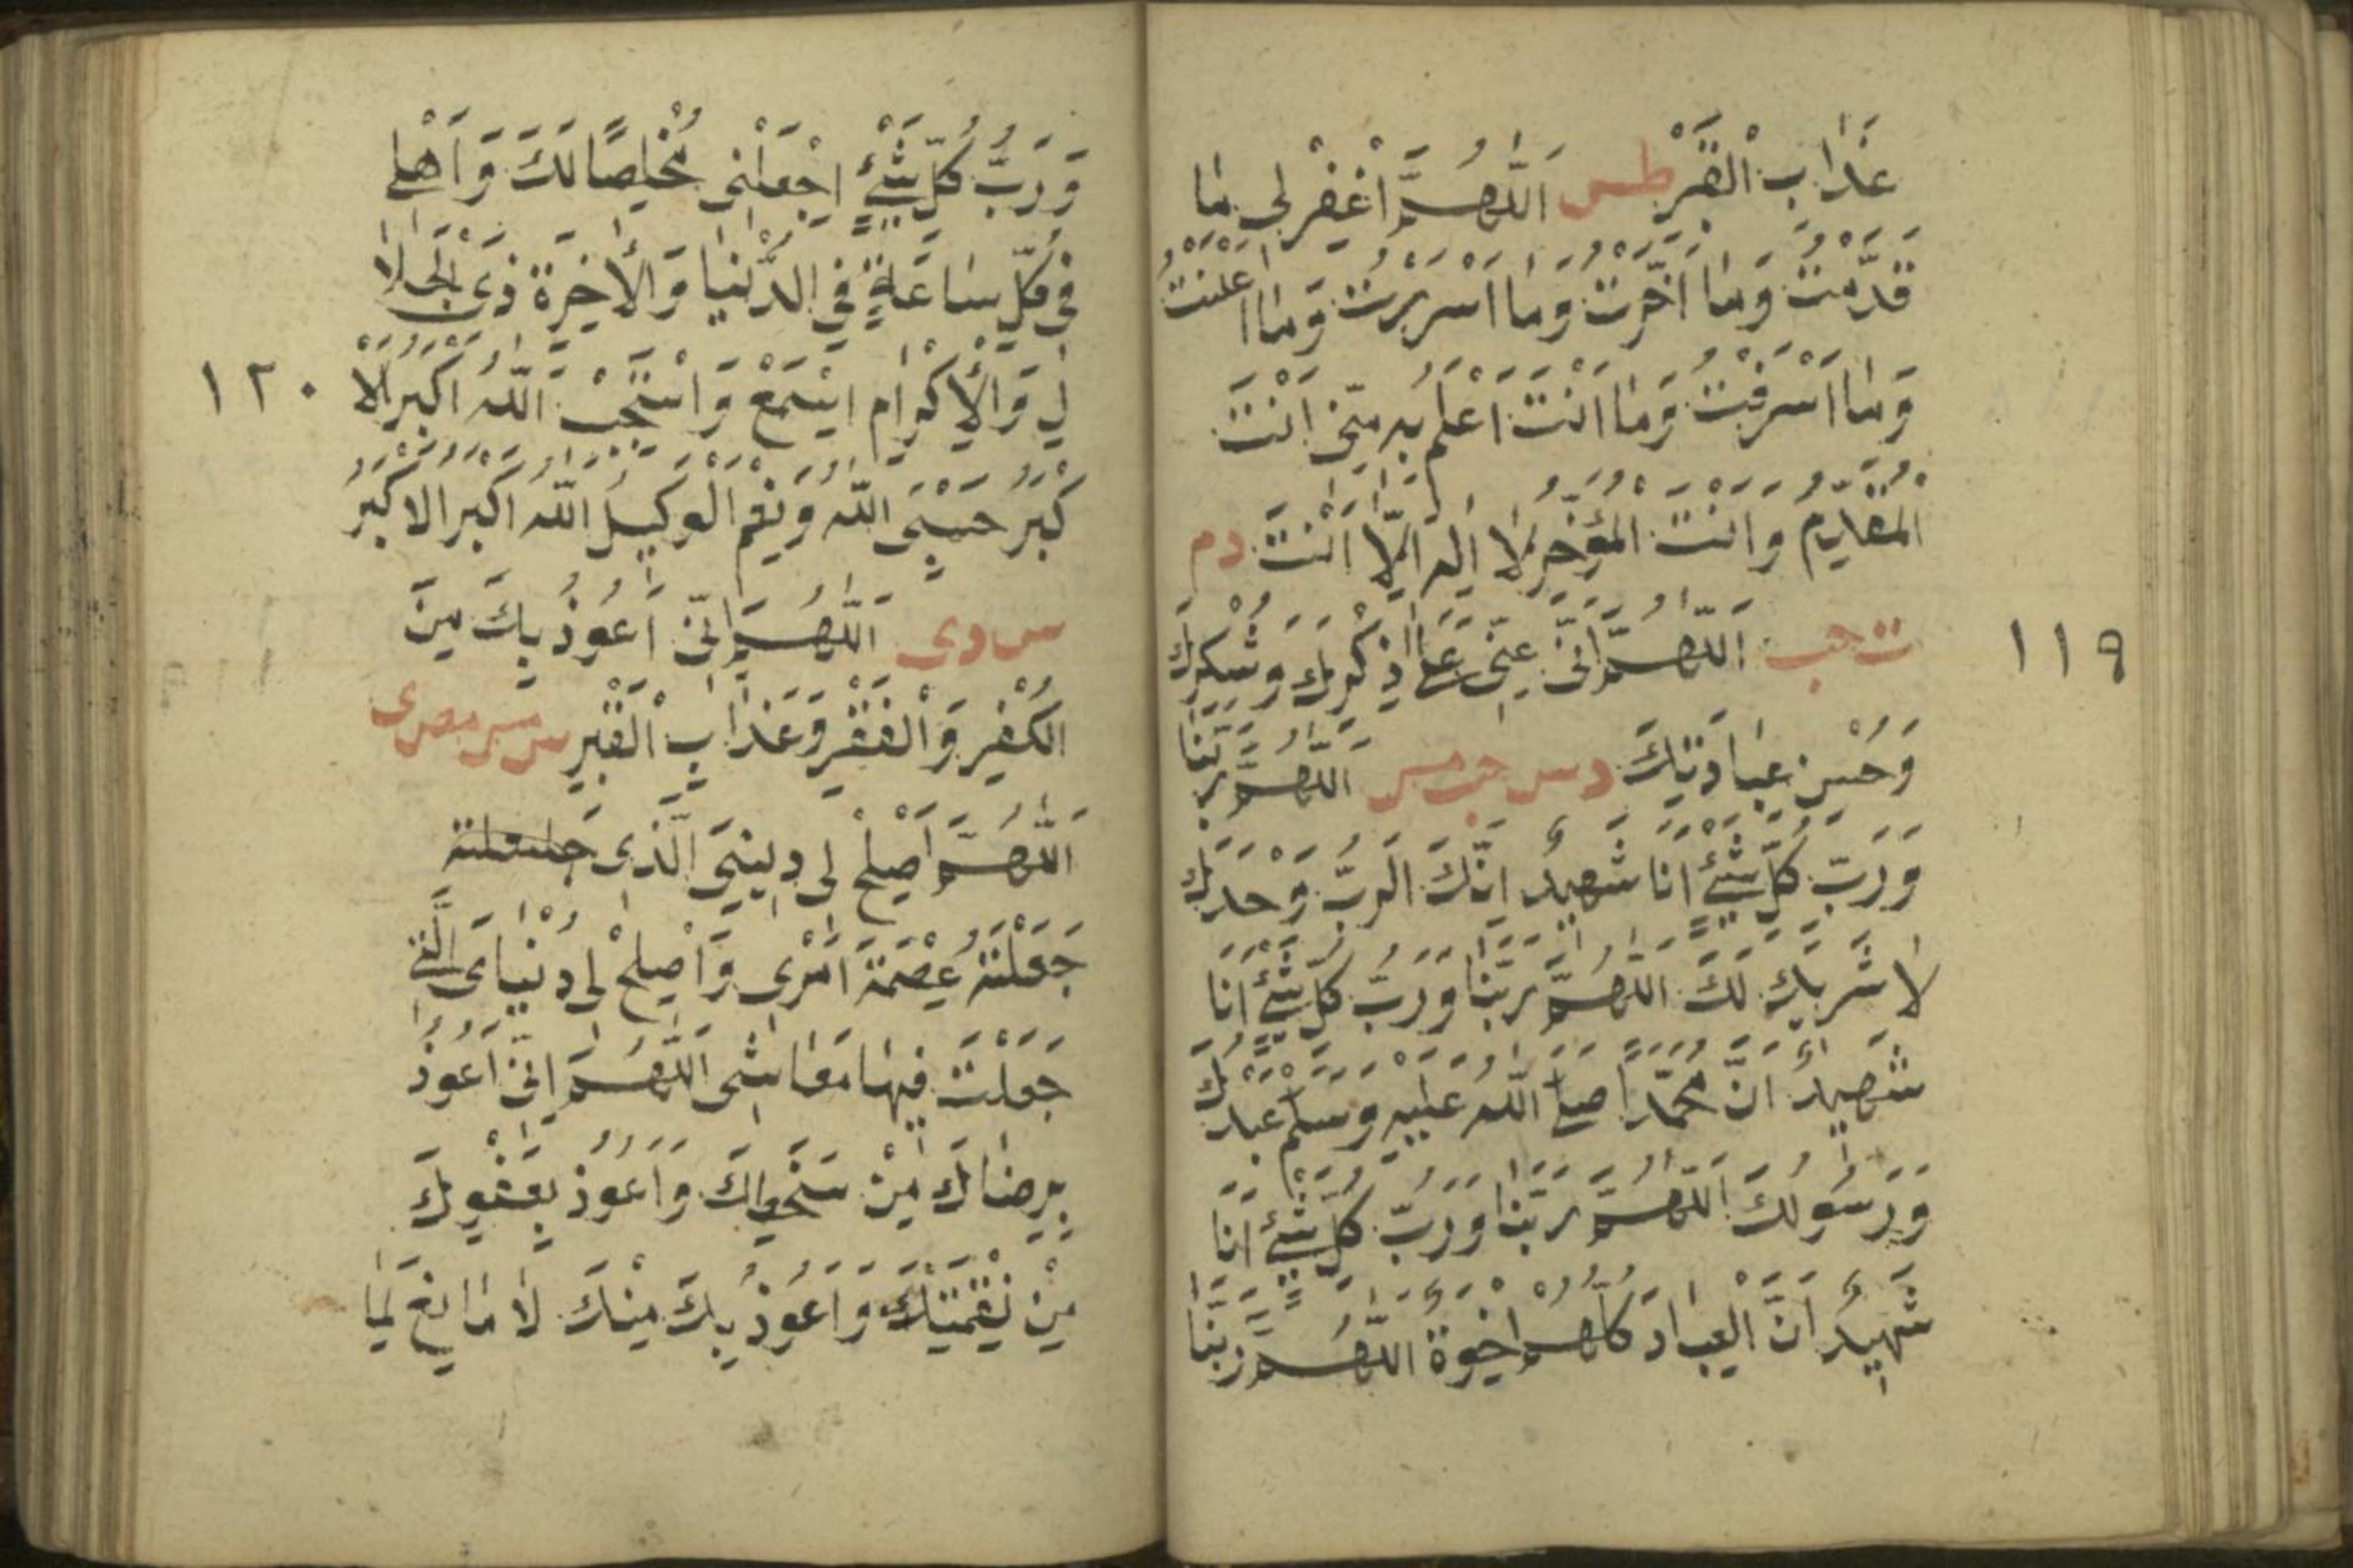 عَذَابِ الْقَبْرِ طس اَللّٰهُمَّ اغْفِرْ لِى مَا
قَدَّمْتُ وَمَا اَخَّرْتُ وَمَا اَسْرَرْتُ وَمَا اَعْلَنْتُ
وَمَا اَسْرَفْتُ وَمَا اَنْتَ اَعْلَمُ بِهِ مِنِّى اَنْتَ
الْمُقَدِّمُ وَاَنْتَ الْمُؤَخِّرُ لَا اِلٰهَ اِلَّا اَنْتَ دم
ت حب اَللّٰهُمَّ اِنِّى عِنِّى عَلٰى ذِكْرِكَ وَشُكْرِكَ
١١٩
وَحُسْنِ عِبَادَتِكَ دس حب مس اَللّٰهُمَّ رَبَّنَا
وَرَبَّ كُلِّ شَيْءٍ اَنَا شَهِيدٌ اِنَّكَ الرَّبُّ وَحْدَكَ
لَا شَرِيْكَ لَكَ اَللّٰهُمَّ رَبَّنَا وَرَبَّ كُلِّ شَيْءٍ اَنَا
شَهِيدٌ اَنَّ مُحَمَّدًا صَلَّى اللّٰهُ عَلَيْهِ وَسَلَّمَ عَبْدُكَ
وَرَسُولُكَ اَللّٰهُمَّ رَبَّنَا وَرَبَّ كُلِّ شَيْءٍ اَنَا
شَهِيدٌ اَنَّ الْعِبَادَ كُلَّهُمْ اِخْوَةٌ اَللّٰهُمَّ رَبَّنَا
وَرَبَّ كُلِّ شَيْءٍ اِجْعَلْنِى مُخْلِصًا لَكَ وَاَهْلِى
فِى كُلِّ سَاعَةٍ فِى الدُّنْيَا وَالْاٰخِرَةِ ذِى الْجَلَا
لِ وَالْاِكْرَامِ اِسْتَمِعْ وَاسْتَجِبْ اَللّٰهُ اَكْبَرُ الْاَ
١٢٠
كْبَرُ حَسْبِىَ اللّٰهُ وَنِعْمَ الْوَكِيلُ اَللّٰهُ اَكْبَرُ الْاَكْبَرُ
س د ى اَللّٰهُمَّ اِنِّى اَعُوذُ بِكَ مِنَ
الْكُفْرِ وَالْفَقْرِ وَعَذَابِ الْقَبْرِ س مس مص ى
اَللّٰهُمَّ اَصْلِحْ لِى دِينِىَ الَّذِى
جَعَلْتَهُ عِصْمَةَ اَمْرِى وَاَصْلِحْ لِى دُنْيَاىَ الَّتِى
جَعَلْتَ فِيهَا مَعَاشِى اَللّٰهُمَّ اِنِّى اَعُوذُ
بِرِضَاكَ مِنْ سَخَطِكَ وَاَعُوذُ بِعَفْوِكَ
مِنْ نِقْمَتِكَ وَاَعُوذُ بِكَ مِنْكَ لَا مَانِعَ لِمَا